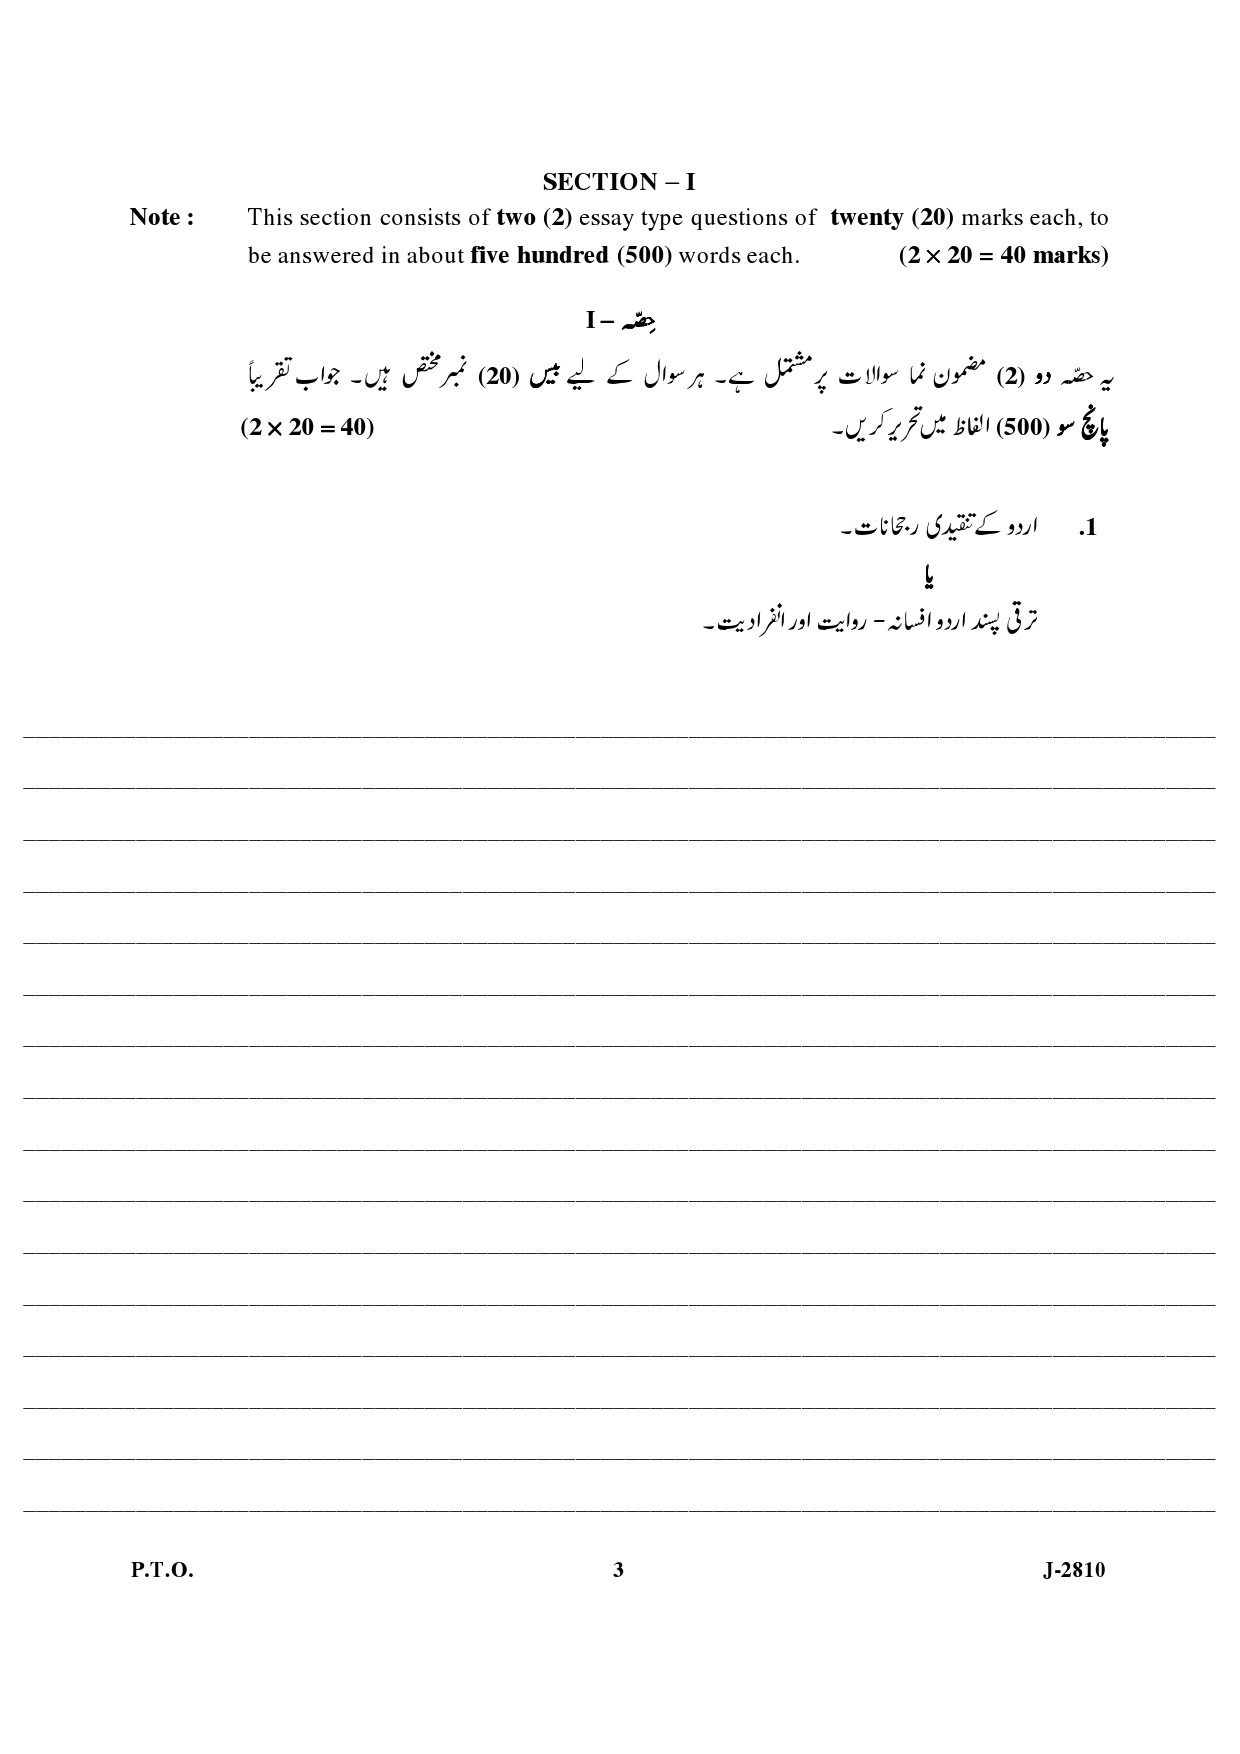 SECTION – I
Note : This section consists of two (2) essay type questions of twenty (20) marks each, to
be answered in about five hundred (500) words each. (2 × 20 = 40 marks)
حِصّہ – I
یہ حصّہ دو (2) مضمون نما سوالات پر مشتمل ہے۔ ہر سوال کے لیے بیس (20) نمبر مختص ہیں۔ جواب تقریباً
پانچ سو (500) الفاظ میں تحریر کریں۔ (2 × 20 = 40)
1. اردو کے تنقیدی رجحانات۔
یا
ترقی پسند اردو افسانہ – روایت اور انفرادیت۔
P.T.O. 3 J-2810